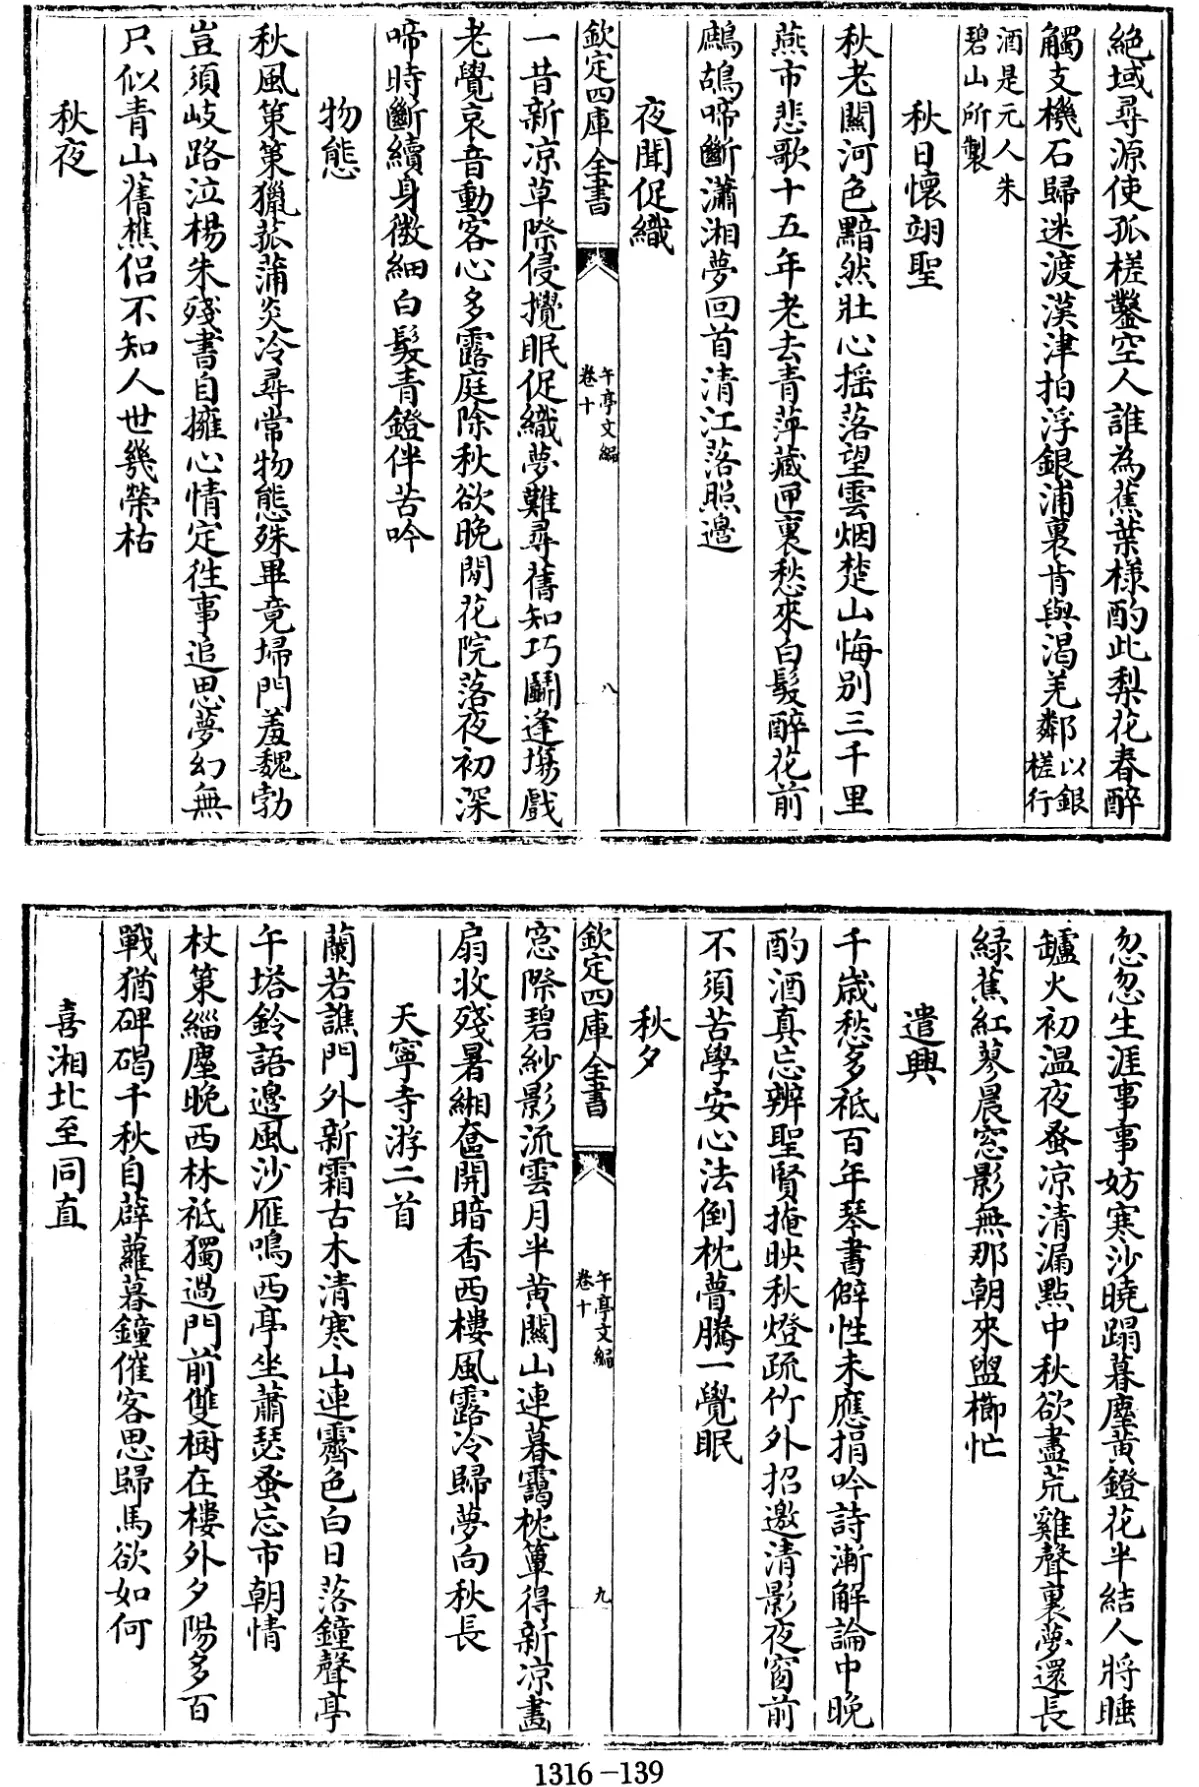 絶域尋源使孤槎鑿空人誰為蕉葉様酌此梨花春醉
觸支機石歸迷渡漢津拍浮銀浦裏肯與渴羌鄰以銀槎行
酒是元人朱碧山所製
秋日懷翊聖
秋老關河色黯然壯心揺落望雲烟楚山悔別三千里
燕市悲歌十五年老去青萍藏匣裏愁來白髮醉花前
鷓鴣啼斷瀟湘夢回首清江落照邉
夜聞促織
欽定四庫全書
午亭文編
卷十
八
一昔新凉草際侵攪眠促織夢難尋舊知巧鬭逢塲戲
老覺哀音動客心多露庭除秋欲晚閒花院落夜初深
啼時斷續身微細白髮青鐙伴苦吟
物態
秋風策策獵菰蒲炎冷尋常物態殊畢竟埽門羞魏勃
豈須岐路泣楊朱殘書自擁心情定徃事追思夢幻無
只似青山舊樵侣不知人世幾榮枯
秋夜
忽忽生涯事事妨寒沙曉蹋暮塵黄鐙花半結人將睡
罏火初温夜蚤凉清漏點中秋欲盡荒雞聲裏夢還長
緑蕉紅蓼晨窓影無那朝來盥櫛忙
遣興
千歲愁多祗百年琴書僻性未應捐吟詩漸解論中晚
酌酒真忘辨聖賢掩映秋燈疏竹外招邀清影夜窗前
不須苦學安心法倒枕瞢騰一覺眠
秋夕
欽定四庫全書
午亭文編
卷十
九
窓際碧紗影流雲月半黄關山連暮靄枕簟得新凉畫
扇收殘暑緗奩開暗香西樓風露冷歸夢向秋長
天寧寺游二首
蘭若譙門外新霜古木清寒山連霽色白日落鐘聲亭
午塔鈴語邉風沙雁鳴西亭坐蕭瑟蚤忘市朝情
杖策緇塵晚西林祗獨過門前雙樹在樓外夕陽多百
戰猶碑碣千秋自薜蘿暮鐘催客思歸馬欲如何
喜湘北至同直
1316－139